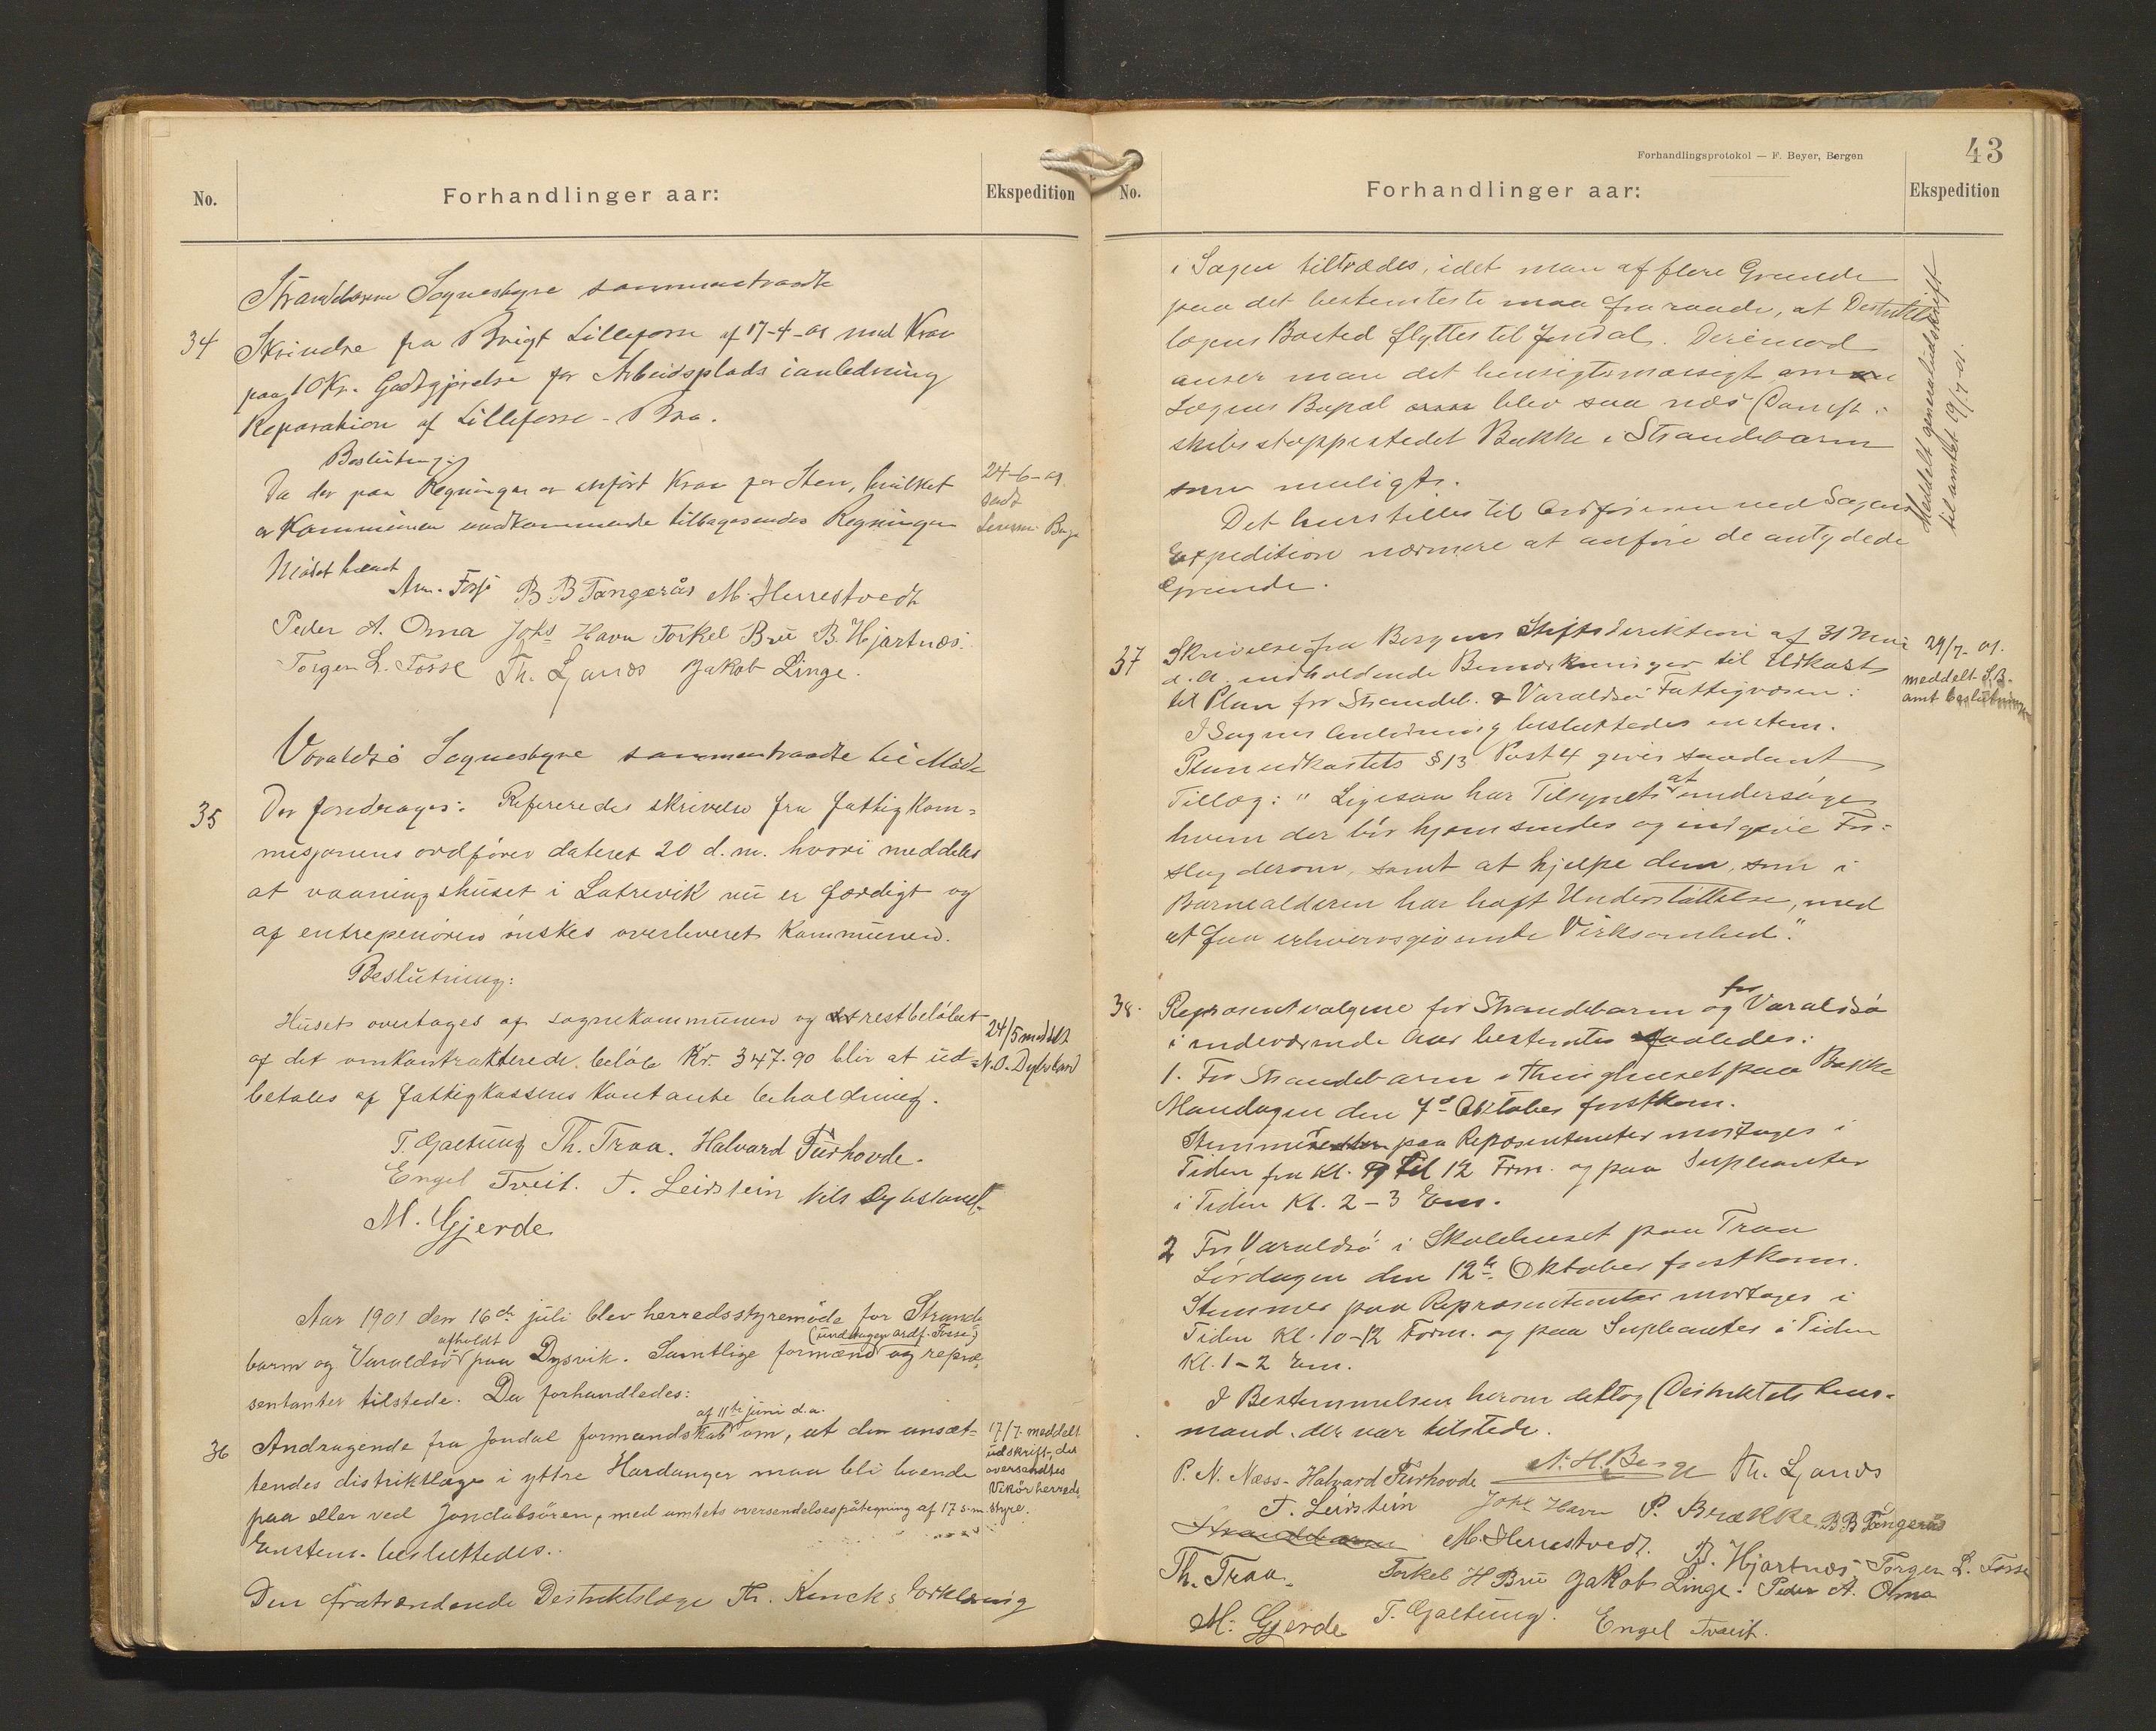 No.
Forhandlinger aar:
Ekspedition
Strandebarm Sognestyre sammentraadte
34
Skrivelse fra Brigt Lilleforse af 17-4-01 med Krav
paa 10 Kr. Godtgjørelse for Arbeidsplads i anledning
Reparation af Lilleforse-Bro.
Beslutning:
Da der paa Regningen er anført Krav for Sten, hvilket
er Kommunen uvedkommende tilbagesendes Regningen
24-6-01
sendt
Lensm. Berge
Mødet hævet
Am. Fosse B B Tangerås M. Herrestvedt
Peder A. Oma Johs Havn Torkel Bru B. Hjartnæs.
Torgen L. Fosse Th. Ljones Jakob Linge.
Varaldsø Sognestyre sammentraadte til Møde
35
Der foredrages: Refereredes skrivelse fra fattigkom=
misjonens ordfører dateret 20 d.m. hvori meddeles
at vaaningshuset i Latrevik nu er færdigt og
af entrepenøren ønskes overleveret Kommunen.
Beslutning:
Huset overtages af sognekommunen og restbeløbet
af det omkontrakterede beløb Kr. 347.90 blir at ud=
betales af fattigkassens kontante beholdning.
24/5 meddelt
N.O. Dybsland
T. Gaetung Th. Traa. Halvard Furhovde.
Engel Tveit. T. Leirstein Nils Dybsland.
M. Gjerde
Aar 1901 den 16de juli blev herredsstyremøde for Strande
barm og Varaldsø afholdt paa Dysvik. Samtlige formænd (undtagen ordf. Fosse) og repræ
sentanter tilstede. Da forhandledes:
36
Andragende fra Jondal formandskab af 11te juni d.a. om, at den ansæt-
tendes distriktlæge i yttre Hardanger maa bli boende
paa eller ved Jondalsøren, med amtets oversendelsespåtegning af 17 s.m.
17/7. meddelt
udskrift, det
oversendtes
Vikør herreds
styre.
Enstem. besluttedes..
Den fratrædende Destriktslæge Th. Kincks Erklæring
Forhandlingsprotokol — F. Beyer, Bergen
43
No.
Forhandlinger aar:
Ekspedition
i Sagen tiltrædes, idet man af flere Grunde
paa det bestemteste maa fraraade, at Destrikts
lægens Bosted flyttes til Jondal. Derimod
anser man det hensigtsmæssigt om
Lægens Bopæl blev saa næs Damp-
skibsstoppestedet Bakke i Strandebarm
som muligt.
Det henstilles til Ordføreren ved Sagens
Expedition nærmere at anføre de antydede
Grunde.
Meddelt genpartudskrift
til amtet 19/7-01.
37
Skrivelse fra Bergens Stiftsdirektion af 31 Mai
d.A. indholdende Bemærkninger til Udkast
til Plan for Strandeb. & Varaldsø Fattigvæsen:
I Sagens Anledning besluttedes enstem.
Planudkastets § 13 Post 4 gives saadant
Tillæg: "Ligesaa har Tilsynet at undersøge
hvem der bør hjemsendes og indgive For=
slag derom, samt at hjelpe dem, som i
Barnealderen har haft Understøttelse, med
at faa erhvervsgivende Virksomhed."
29/7-01.
meddelt S.B.
amt beslutningen
38.
Repræsentvalgene for Strandebarm og for Varaldsø
i indeværende Aar bestemtes saaledes:
1. For Strandebarm i Thinghuset paa Bakke
Mandagen den 7de Oktober førstkom.
Stemmer paa Repræsentanter modtages i
Tiden fra Kl. 9 til 12 Form. og paa Supleanter
i Tiden Kl. 2-3 Em.
2 For Varaldsø i Skolehuset paa Traa
Lørdagen den 12te Oktober førstkom.
Stemmer paa Repræsentanter modtages i
Tiden Kl. 10-12 Form. og paa Supleanter i Tiden
Kl. 1-2 Em.
I Bestemmelsen herom deltog Destriktets Lens-
mand, der var tilstede.
P. N. Næss. Halvard Furhovde N. H. Berge Th. Ljones
T. Leirstein Johs Havn P. Brække B B Tangerås
Strandebarm M. Herrestvedt. B. Hjartnæs. Torgen L. Fosse
Th. Traa. Torkel H Bru Jakob Linge. Peder A. Oma
M. Gjerde T. Gaetung. Engel Tveit.